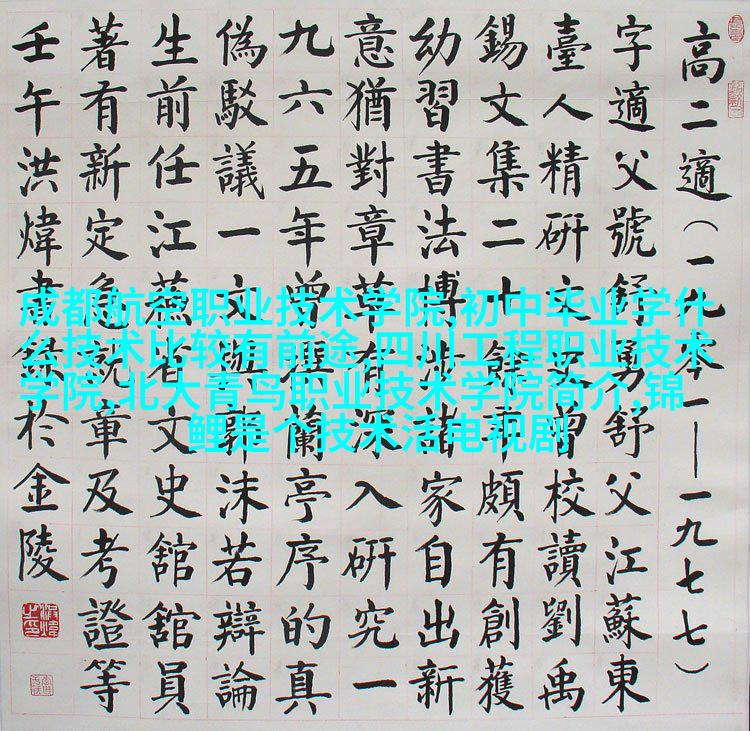 高二適（一九一——一九七七）
字適父號舒勇舒父江蘇東
臺人精研文史曾校讀劉禹
錫文集二十餘頗有創獲
幼習書法博涉諸家自出新
意猶對章草有深入研究一
九六五年曾撰蘭亭序的真
偽駁議一文與郭沫若辯論
生前任江蘇省文史館館員
著有新定急就章及考證等
壬午洪煒書錄於金陵
成都航空职业技术学院,初中毕业学什
么技术比较有前途,四川工程职业技术
学院,北大青鸟职业技术学院简介,锦
鲤是个技术活电视剧